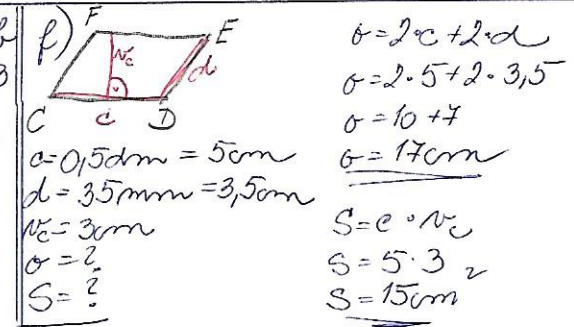 f)
F
E
v_c
d
C
c
D
c = 0,5dm = 5cm
d = 35mm = 3,5cm
v_c = 3cm
o = ?
S = ?
o = 2·c + 2·d
o = 2·5 + 2·3,5
o = 10 + 7
o = 17cm
S = c · v_c
S = 5·3
S = 15cm²